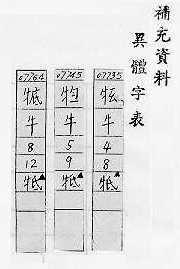 補充資料
異體字表
07735
牛
4
8
牴▲
07745
牛
5
9
牴▲
07764
牛
8
12
牴▲